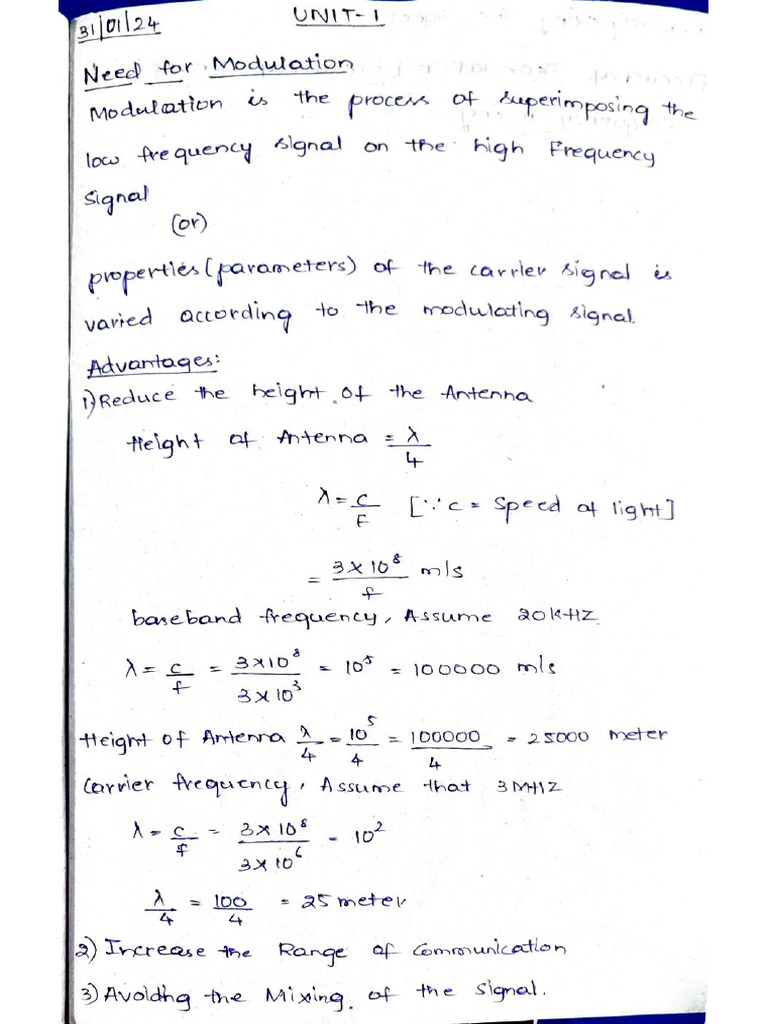 31/01/24
UNIT-1
Need for Modulation
Modulation is the process of superimposing the
low frequency signal on the high Frequency
signal
(or)
properties (parameters) of the carrier signal is
varied according to the modulating signal.
Advantages:
1) Reduce the height of the Antenna
Height of Antenna = λ/4
λ = c/F [∵ c = Speed of light]
= 3×10⁸/f m/s
baseband frequency, Assume 20KHZ
λ = c/f = 3×10⁸/3×10³ = 10⁵ = 100000 m/s
Height of Antenna λ/4 = 10⁵/4 = 100000/4 = 25000 meter
Carrier frequency, Assume that 3MHZ
λ = c/f = 3×10⁸/3×10⁶ = 10²
λ/4 = 100/4 = 25 meter
2) Increase the Range of Communication
3) Avoiding the Mixing of the signal.